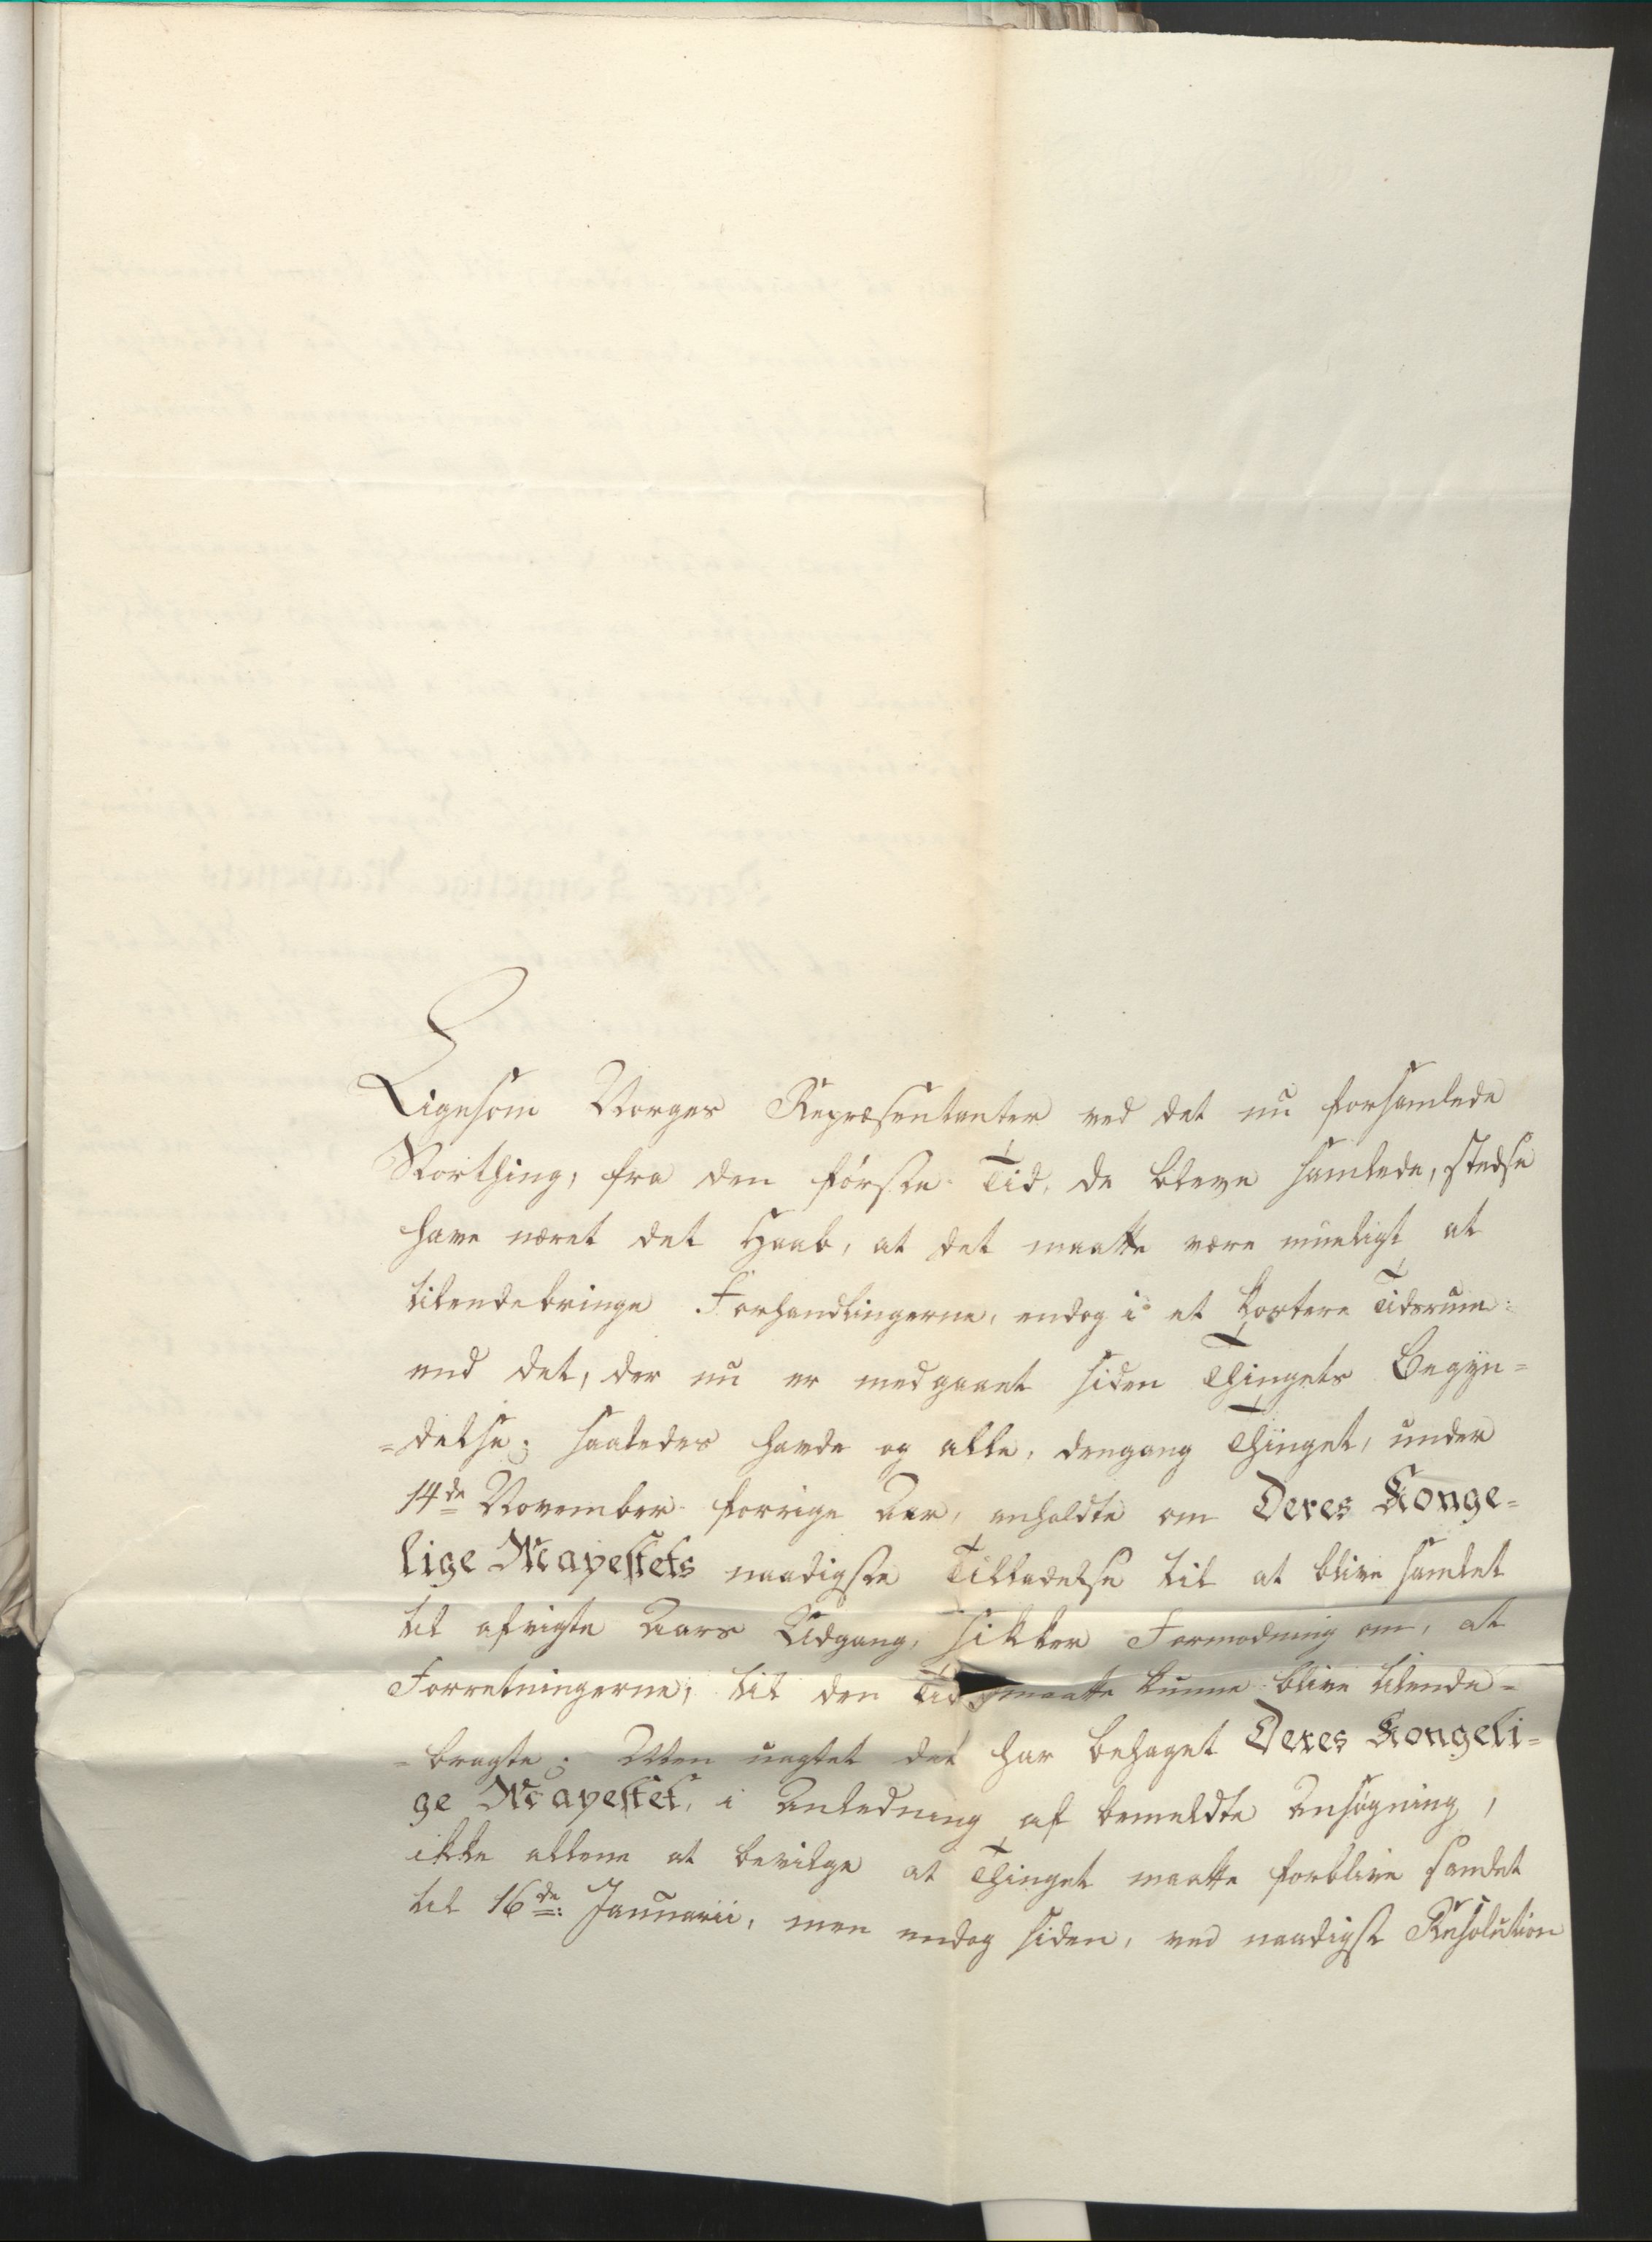 Ligesom Norges Repræsentanter ved det nu forsamlede
Storthing, fra den første Tid, de bleve samlede, stedse
have næret det Haab, at det maatte være mueligt at
tilendebringe Forhandlingerne, endog i et kortere Tidsrum
end det, der nu er medgaaet siden Thingets Begyn=
=delse; saaledes havde og alle, dengang Thinget, under
14de November forrige Aar, anholdte om Deres Konge=
lige Mayestets naadigste Tilladelse til at blive samlet
til afvigte Aars Udgang, sikker Formodning om, at
Forretningerne, til den Tid maatte kunne blive tilende=
=bragte; Men uagtet det har behaget Deres Kongeli=
ge Mayestet, i Anledning af bemeldte Ansøgning,
ikke allene at bevilge at Thinget maatte forblive samlet
til 16de: Januarii, men endog siden, ved naadigst Resolution